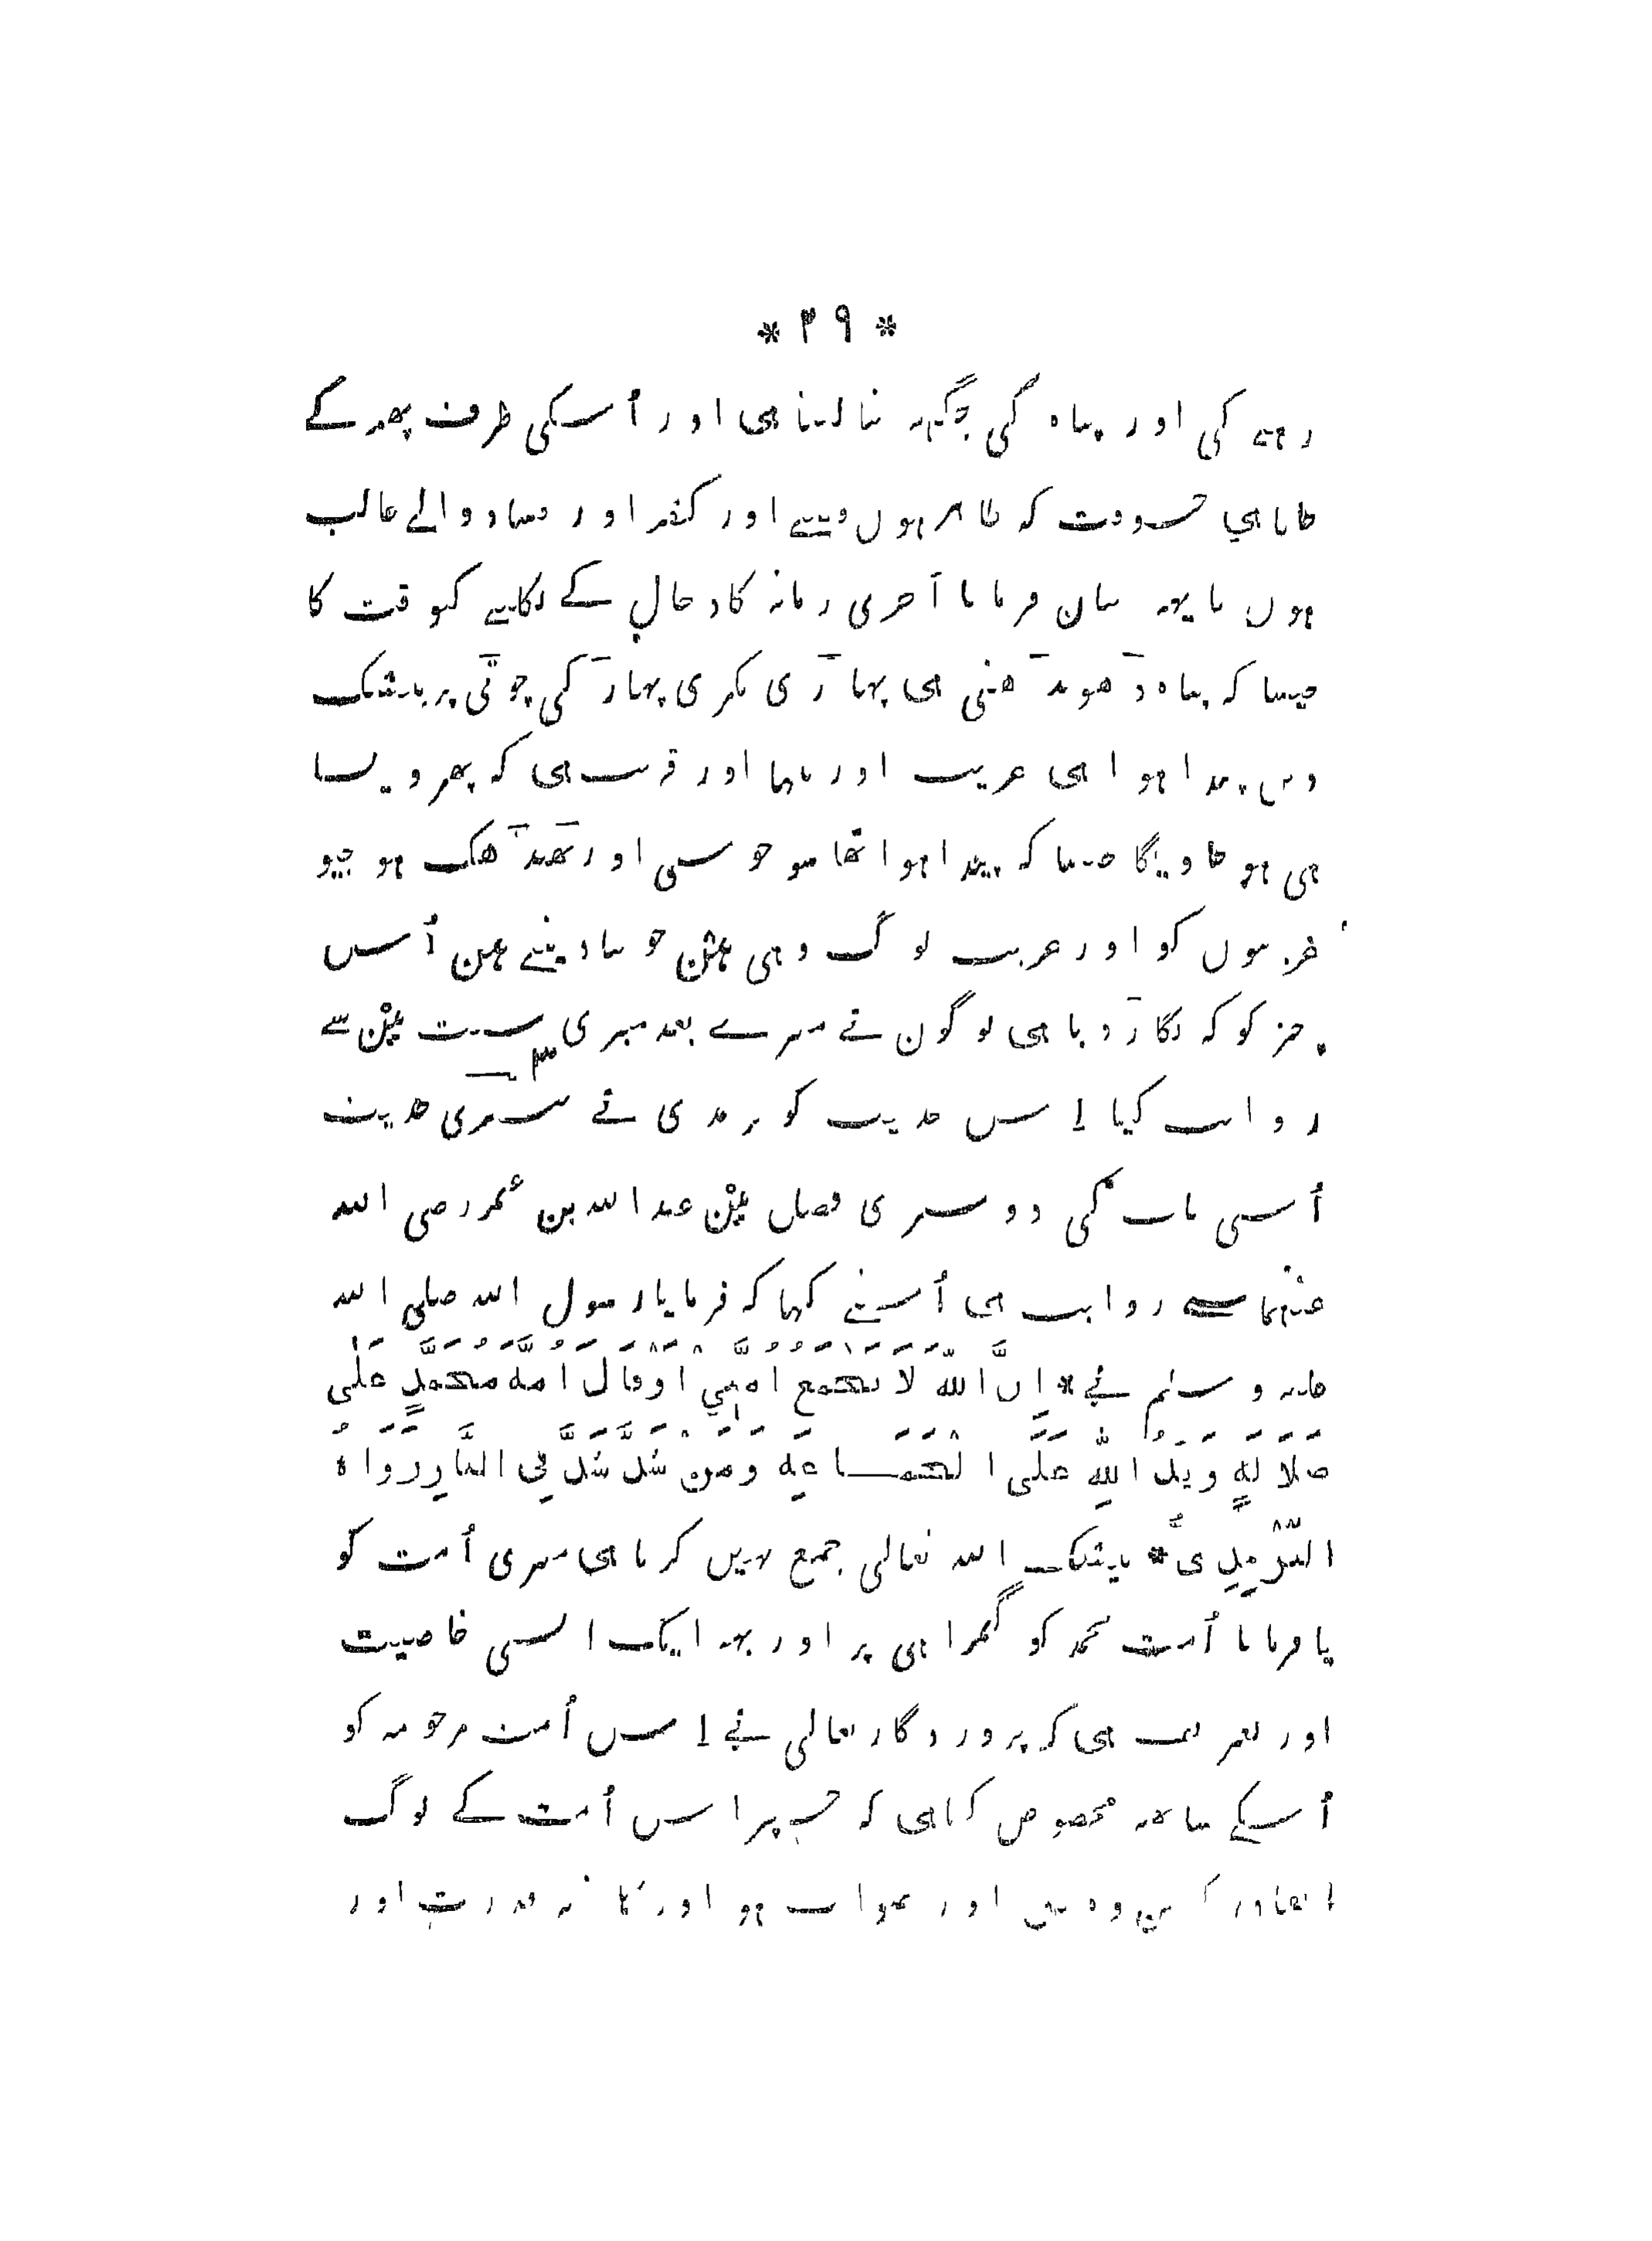 * ٣٩ *
رہنے کی اور پناہ کی جگہہ بنا لیتا ہی اور اُسکی طرف پھر کے
جاتا ہی جسوقت کہ ظاہر ہوں فتنے اور کفر اور فساد والے غالب
ہوں یا یہہ بیان فرمایا آخری زمانہ کا دجال کے نکلنے کیوقت کا
جیسا کہ پناہ ڈھونڈھتی ہی پہاڑی بکری پہاڑ کی چوٹی پر بیشک
دین پیدا ہوا ہی غریب اور تنہا اور قریب ہی کہ پھر ویسا
ہی ہو جاویگا جیسا کہ پیدا ہوا تھا سو خوشی اور ٹھنڈھک ہو جیو
غریبوں کو اور غریب لوگ وہی ہیں جو بنا دیتے ہیں اُس
چیز کو کہ بگاڑ دیا ہی لوگوں نے میرے بعد میری سنت میں سے
روایت کیا اِس حدیث کو ترمذی نے تیسری حدیث
اُسی باب کی دوسری فصل میں عبد اللہ بن عُمر رضی اللہ
عنہما سے روایت ہی اُسنے کہا کہ فرمایا رسول اللہ صلی اللہ
علیہ و سلم نے * اِنَّ اللّٰهَ لَا يَجْمَعُ اُمَّتِي اَوْقَالَ اُمَّةَ مُحَمَّدٍ عَلٰى
ضَلَالَةٍ وَيَدُ اللّٰهِ عَلَى الْجَمَاعَةِ وَمَنْ شَذَّ شُذَّ فِى النَّارِ رَوَاهُ
التِّرْمِذِىُّ * بیشک اللہ تعالی جمع نہیں کرتا ہی میری اُمت کو
یا فرمایا اُمت محمد کو گمراہی پر اور یہہ ایک ایسی خاصیت
اور نعمت ہی کہ پروردگار تعالی نے اِس اُمت مرحومہ کو
اُسکے ساتھہ مخصوص کیا ہی کہ جسپر اس اُمت کے لوگ
اتفاق کریں وہ حق اور صواب ہو اور اور